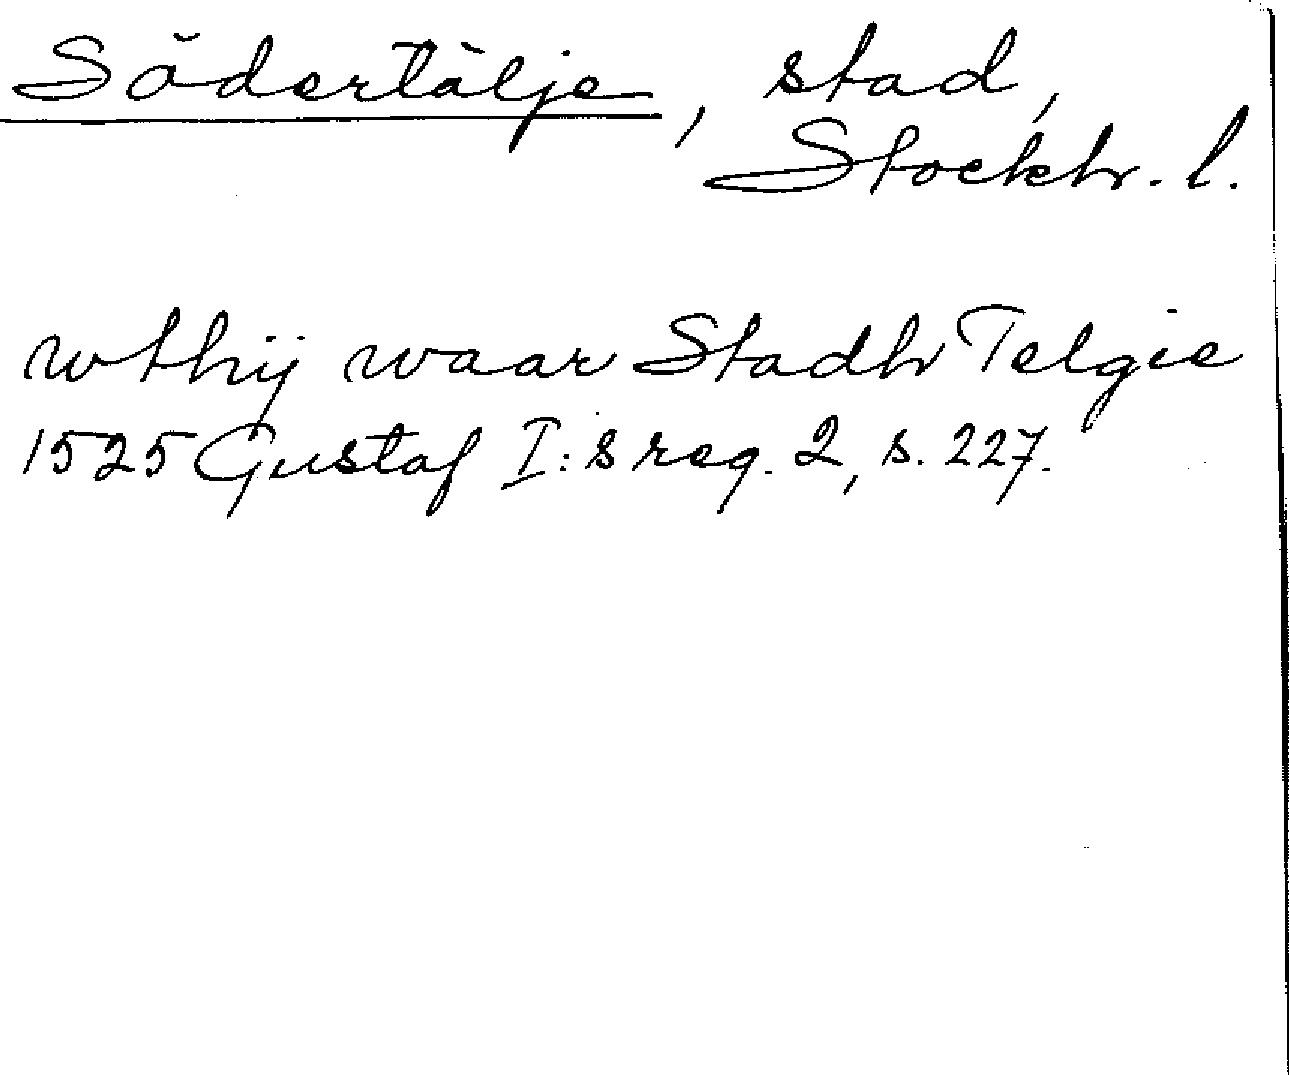 Södertälje, stad,
Stockh. l.
wthij waar Stadh Telgie
1525 Gustaf I:s reg. 2, s. 227.